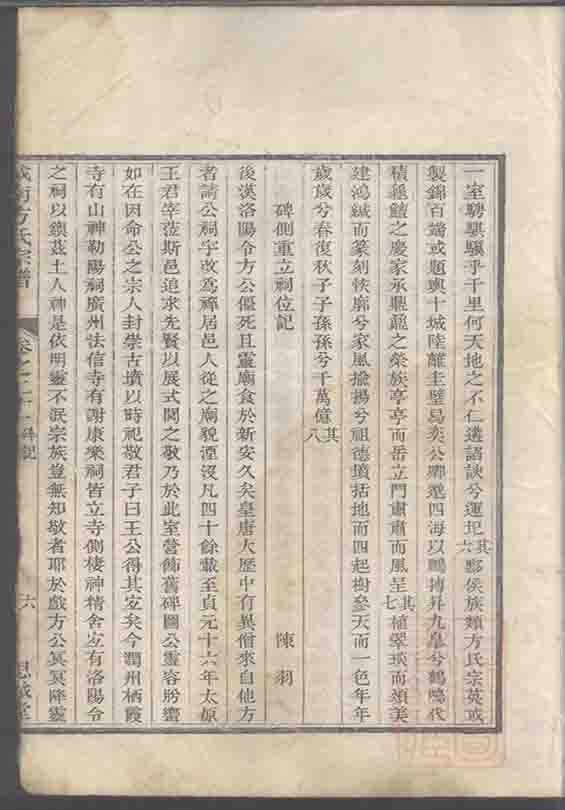 一室騁騏驥乎千里何天地之不仁遘諸訣兮運圯其六鄅侯族類方氏宗英或
製錦百端或題輿十城陸離圭璧舄奕公卿邈四海以鵬摶昇九臯兮鶴鳴代
積龜鱣之慶家承鼎鼐之榮族亭亭而岳立門肅肅而風呈其七植翠琰而頌美
建鴻緘而篆刻恢廓兮家風揄揚兮祖德墳括地而四起樹參天而一色年年
歲歲兮春復秋子子孫孫兮千萬億其八
碑側重立祠位記
陳羽
後漢洛陽令方公儼死且靈廟食於新安久矣皇唐大歷中有異僧來自他方
者請公祠宇改為禪居邑人從之廟貌湮沒凡四十餘載至貞元十六年太原
王君宰蒞斯邑追求先賢以展式閭之敬乃於此室營飾舊碑圖公靈容肸蠁
如在因命公之宗人封崇古墳以時祀敬君子曰王公得其宜矣今潤州栖霞
寺有山神勒陽祠廣州法信寺有謝康樂祠皆立寺側棲神精舍宜有洛陽令
之祠以鎮茲土人神是依明靈不泯宗族豈無知敬者耶於戲方公冥冥降靈
方氏宗譜
卷之
碑記
六
思誠堂